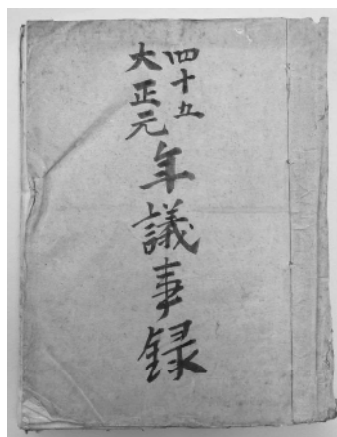 四十五
大正元
年議事録